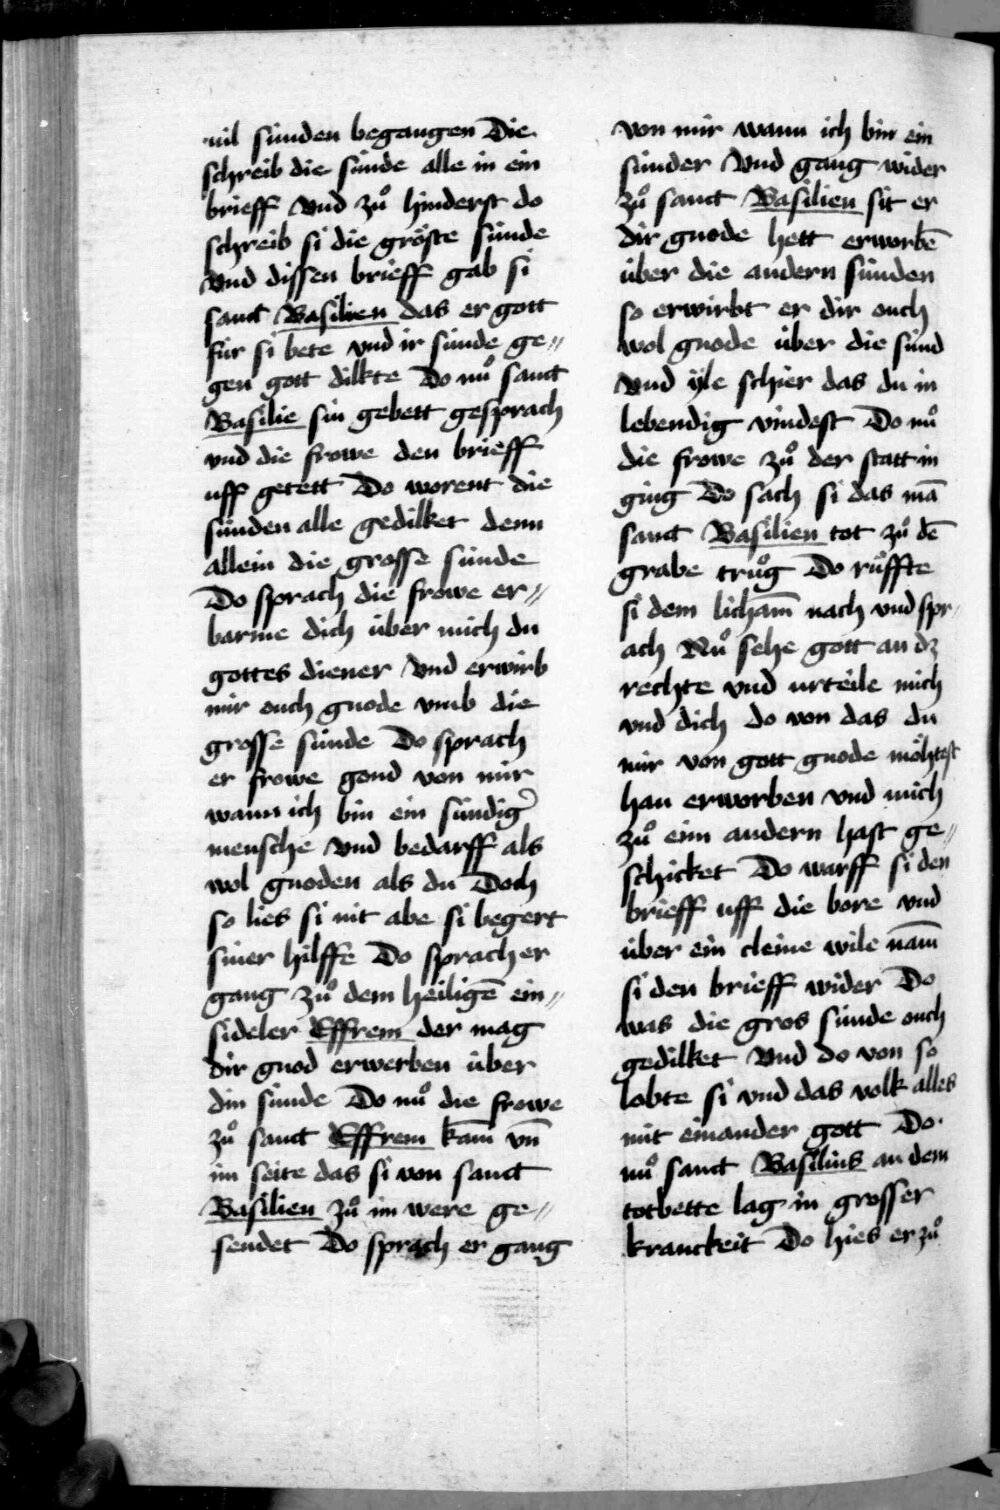 vil sünden begangen Die
schreib die sünde alle in ein
brieff Vnd zuͦ hinderst do
schreib si die gröste sünde
Vnd dissen brieff gab si
sanct Basilien das er gott
für si bete vnd ir sünde ge〃
gen gott dilkte Do nuͦ sanct
Basilie sin gebett gesprach
vnd die frowe den brieff
uff getett Do worent die
sünden alle gedilket denn
allein die grosse sünde
Do sprach die frowe er〃
barme dich über mich du
gottes diener Vnd erwirb
mir ouch gnode vmb die
grosse sünde Do sprach
er frowe gond von mir
wann ich bin ein sündigʼ
mensche Vnd bedarff als
wol gnoden als du Doch
so lies si nit abe si begert
siner hilffe Do sprach er
gang zuͦ dem heiligē ein〃
sideler Effrem der mag
dir gnod erwerben über
din sünde Do nuͦ die frowe
zuͦ sanct Effrem kam̄ vn̄
im seite das si von sanct
Basilien zuͦ im were ge〃
sendet Do sprach er gang
von mir wann ich bin ein
sünder Vnd gang wider
zuͦ sanct Basilien sit er
dir gnode hett erworbē
über die andern sünden
so erwirbt er dir ouch
wol gnode über die sünd
Vnd ÿle schier das du in
lebendig vindest Do nuͦ
die frowe zuͦ der statt in
ging Do sach si das mā
sanct Basilien tot zuͦ dē
grabe truͦg Do ruͦffte
si dem licham̄ nach vnd spr〃
ach Nuͦ sehe gott an dz
rechte vnd urteile mich
vnd dich do von das du
mir von gott gnode möhtest
han erworben vnd mich
zuͦ eim andern hast ge〃
schicket Do warff si den
brieff uff die bore vnd
über ein cleine wile nam̄
si den brieff wider Do
was die gros sünde ouch
gedilket Vnd do von so
lobte si vnd das volk alles
mit einander gott Do
nuͦ sanct Basilius an dem
totbette lag in grosser
kranckeit Do hies er zuͦ